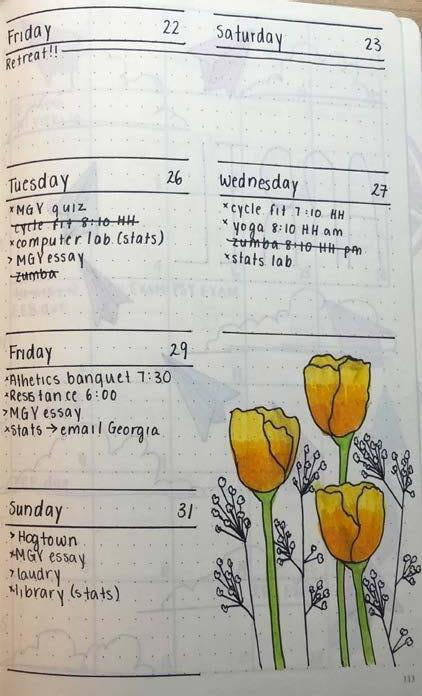 Friday 22
Retreat!!
Saturday 23
Tuesday 26
×MGY quiz
cycle fit 8:10 HH
×computer lab (stats)
>MGY essay
zumba
Wednesday 27
×cycle fit 7:10 HH
×yoga 8:10 HH am
zumba 8:10 HH pm
×stats lab
Friday 29
×Athletics banquet 7:30
×Resstance 6:00
>MGY essay
×stats → email Georgia
Sunday 31
>Hogtown
×MGY essay
>laudry
×library (stats)
113